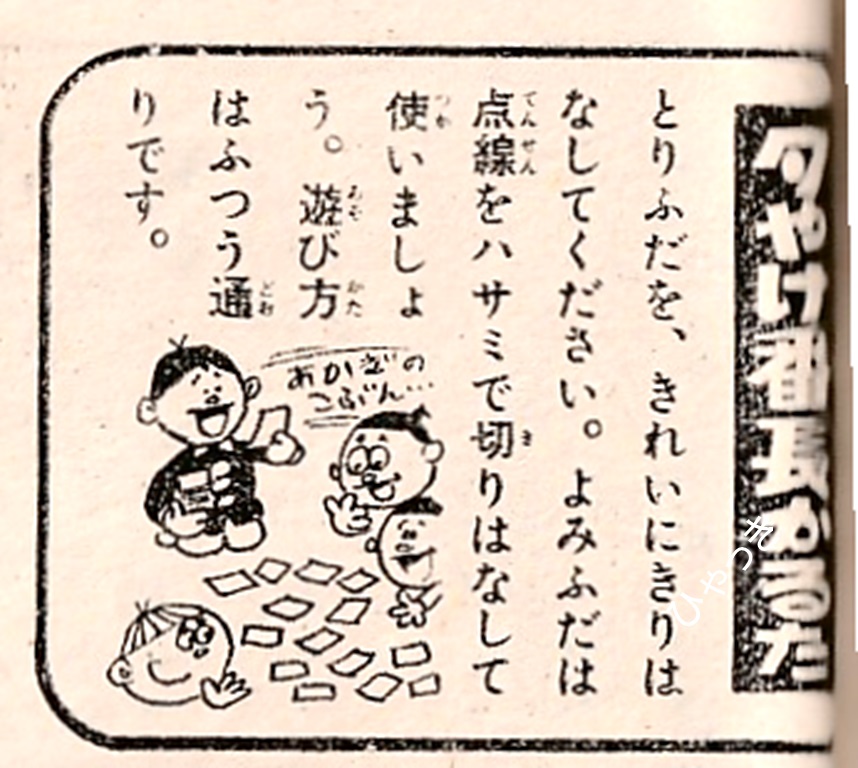 夕やけ番長かるた
とりふだを、きれいにきりは
なしてください。よみふだは
てんせん　き
点線をハサミで切りはなして
つか
使いましょ
あそ　かた
う。遊び方
どお
はふつう通
りです。
あかぎの
こぶん…
ひゃっき